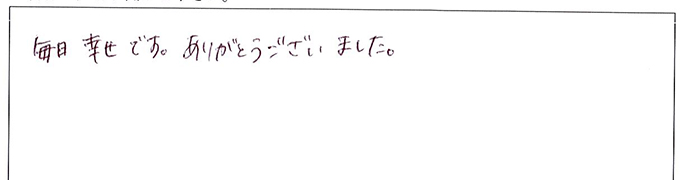 毎日 幸せです。ありがとうございました。